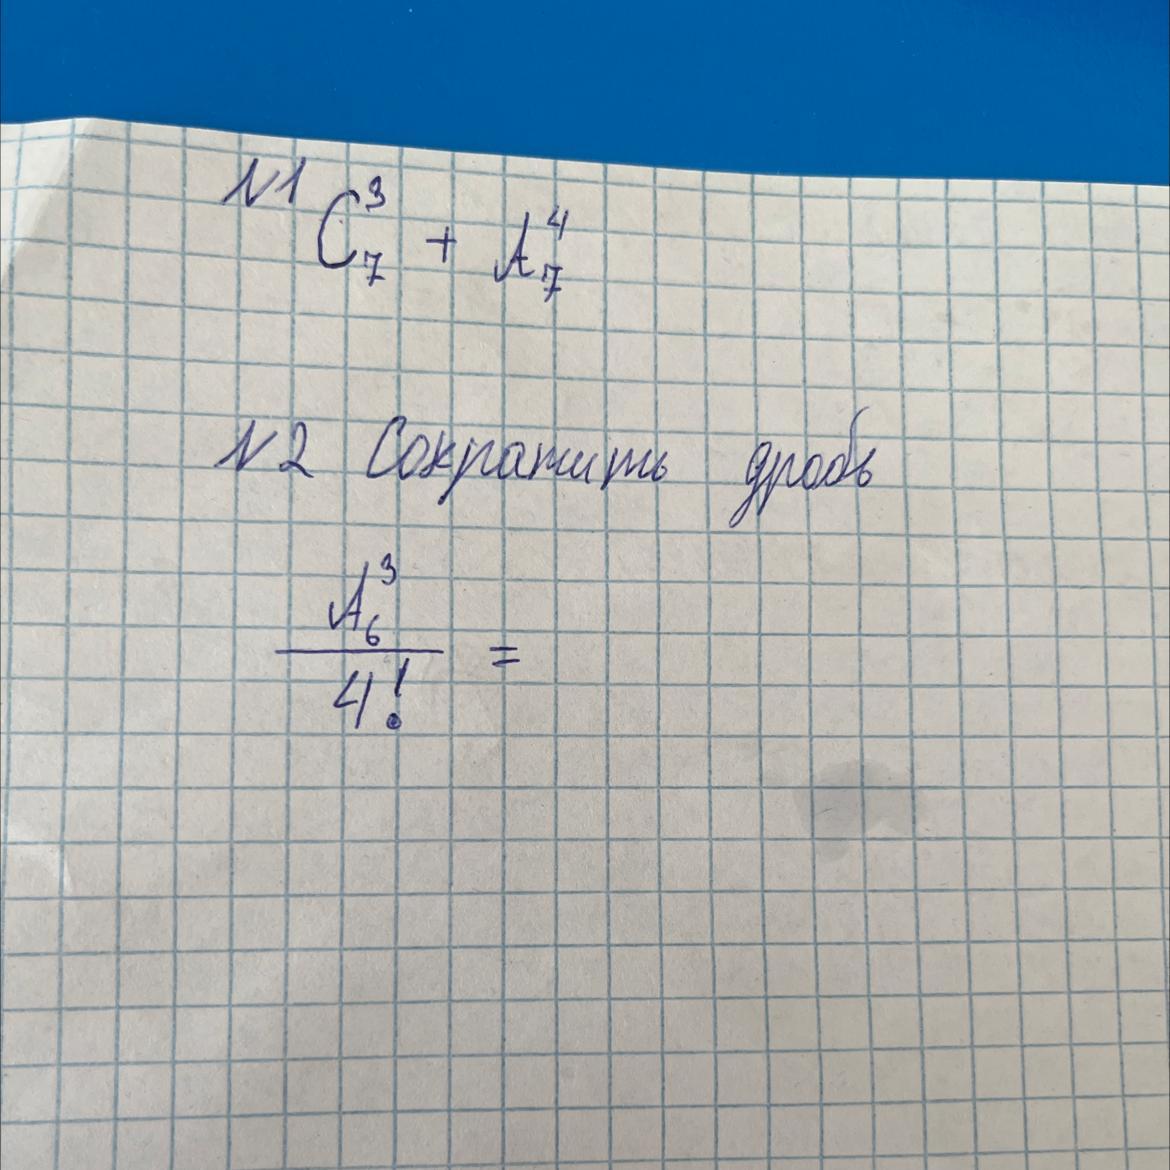 №1 C₇³ + A₇⁴
№2 Сократить дробь
A₆³
4! =